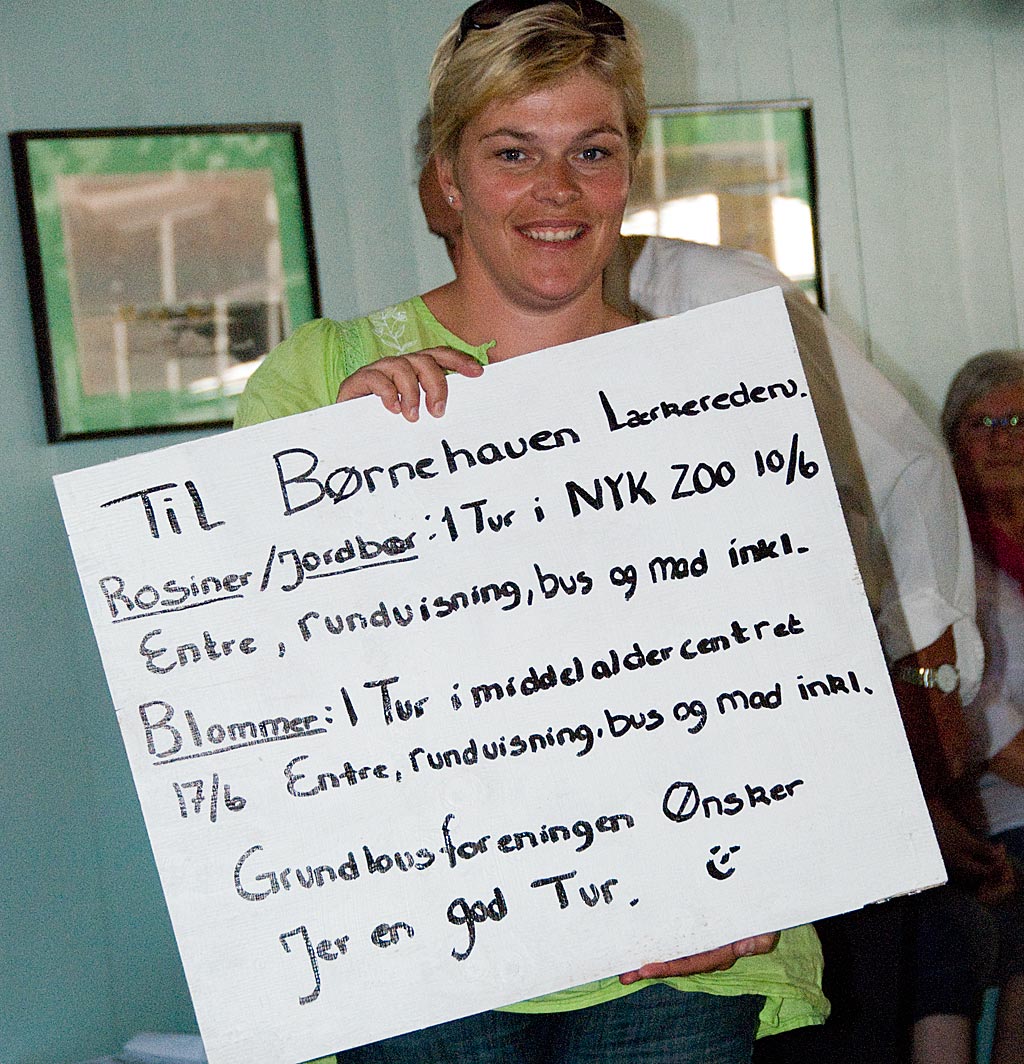 Til Børnehaven Lærkereden.
Rosiner/Jordbær: 1 Tur i NYK ZOO 10/6
Entre, rundvisning, bus og mad inkl.
Blommer: 1 Tur i middelaldercentret
17/6 Entre, rundvisning, bus og mad inkl.
Grundlovsforeningen Ønsker
Jer en god Tur.